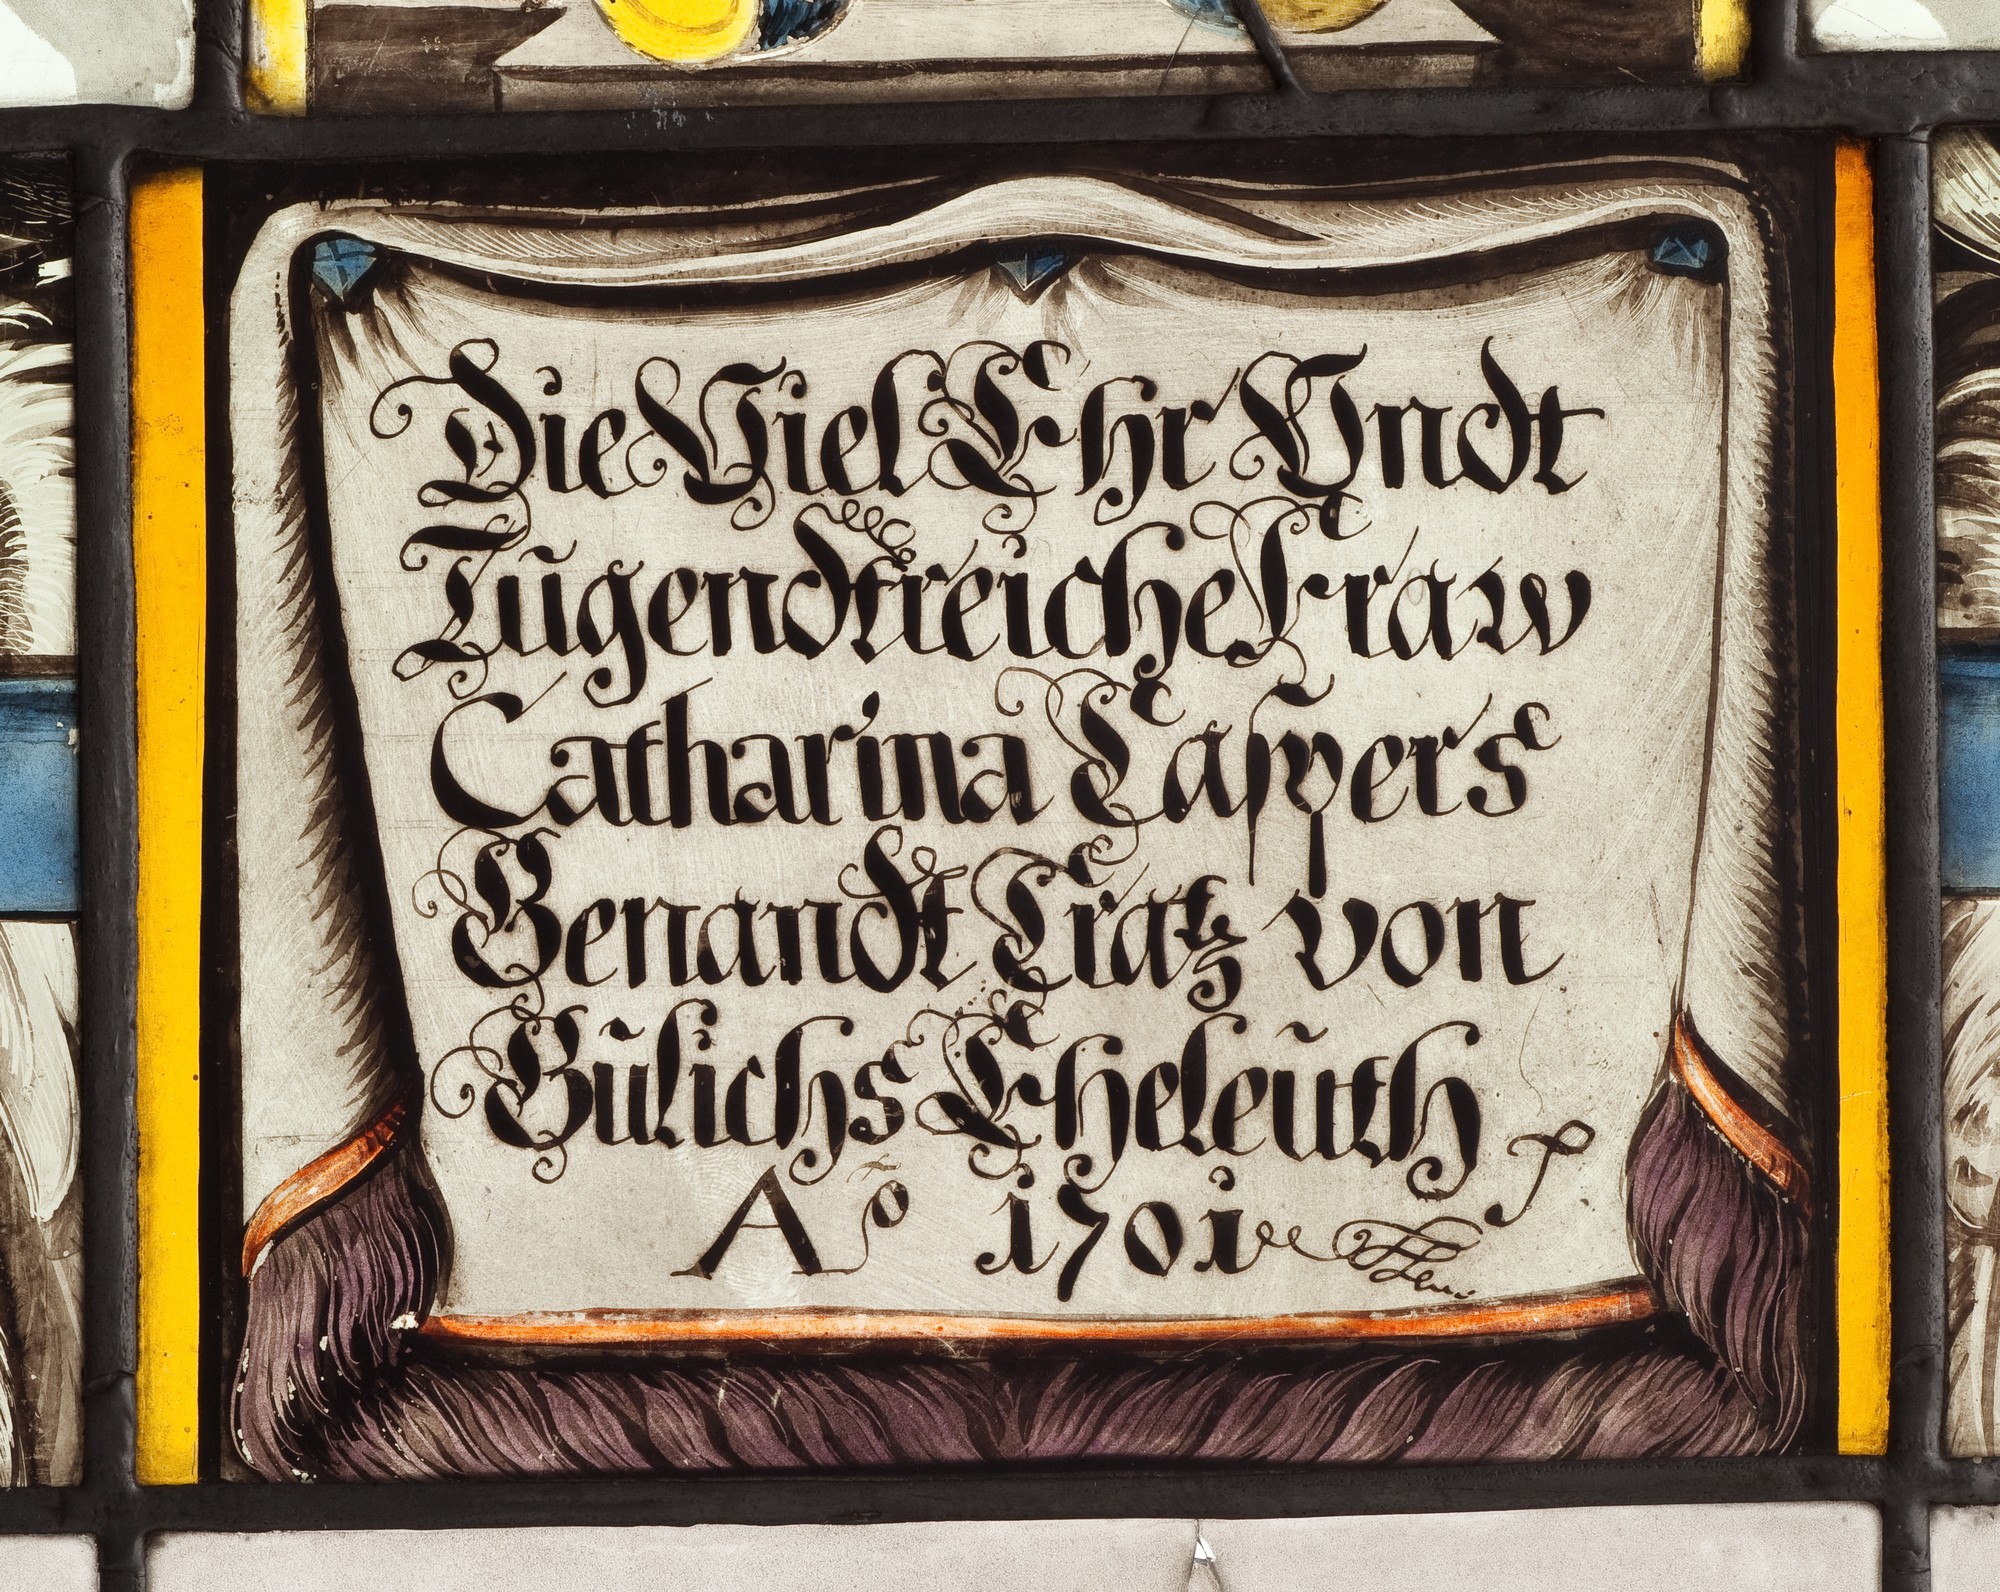 Die Viel Ehr Vndt
Tügendtreiche Fraw
Catharina Caspers
Genandt Cratz von
Gülichs Eheleüth
Aͦ 1701